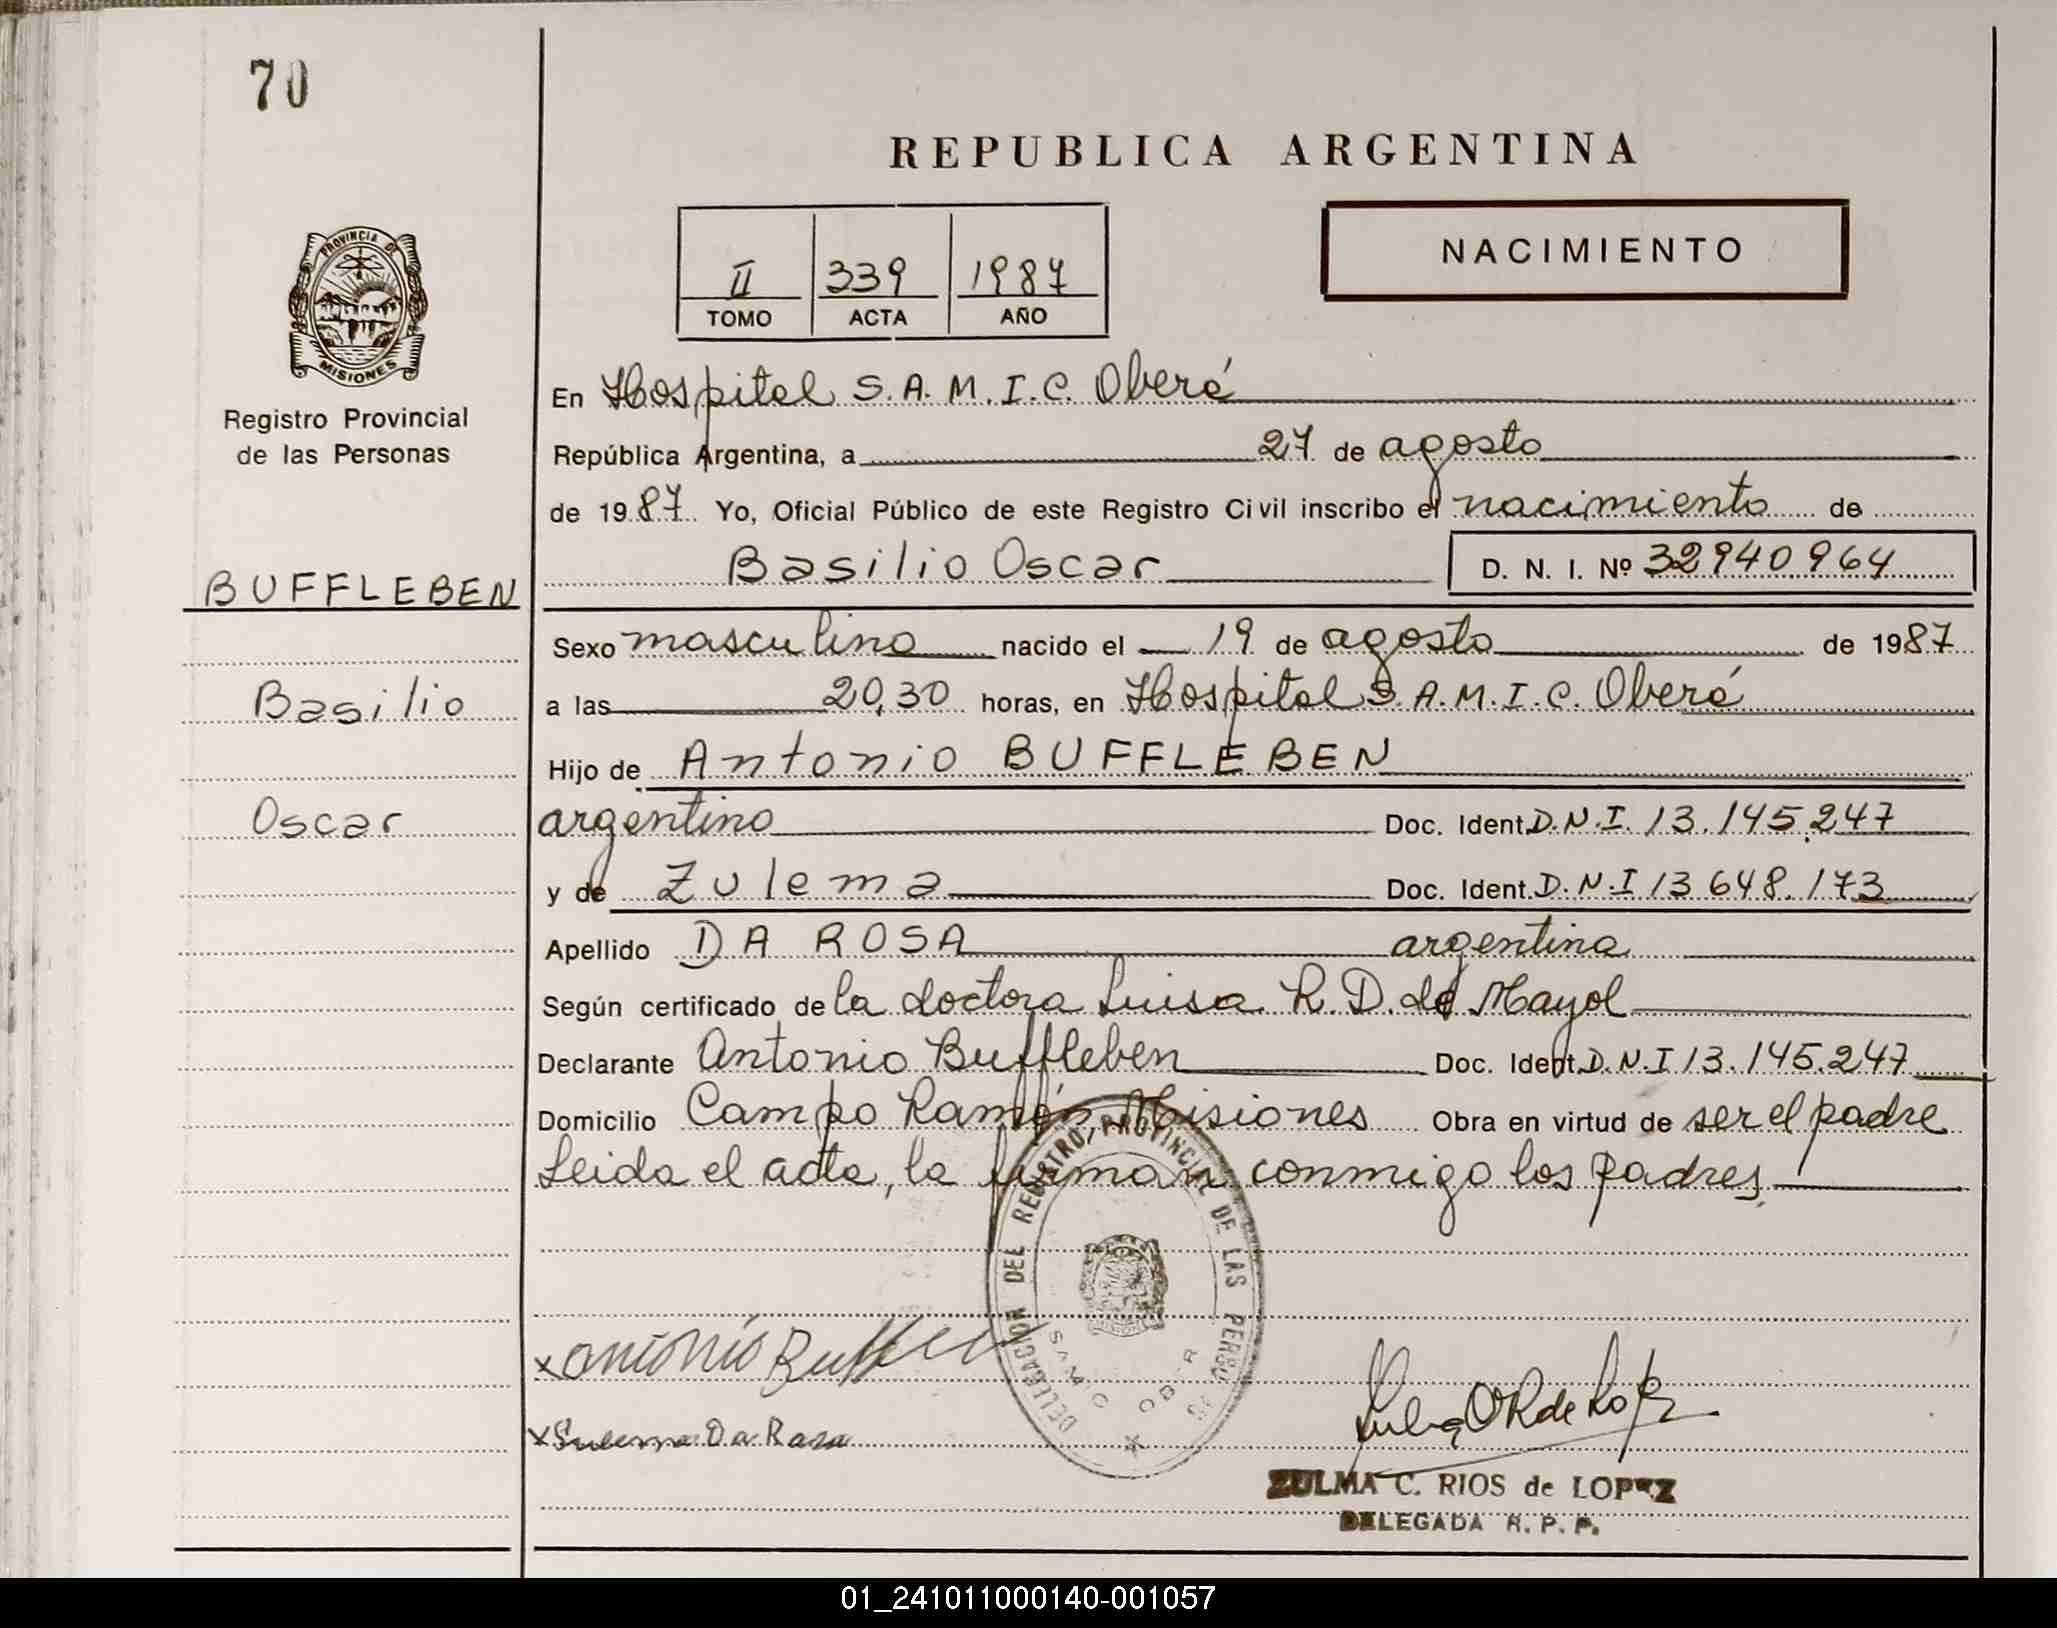 70
REPUBLICA ARGENTINA
PROVINCIA DE
MISIONES
II 339 1987
TOMO ACTA AÑO
NACIMIENTO
Registro Provincial
de las Personas
En Hospital S.A.M.I.C. Oberá
República Argentina, a 27 de agosto
de 1987. Yo, Oficial Público de este Registro Civil inscribo el nacimiento de
Basilio Oscar D. N. I. Nº 32940964
BUFFLEBEN
Basilio
Oscar
Sexo masculino nacido el 19 de agosto de 1987
a las 20,30 horas, en Hospital S.A.M.I.C. Oberá
Hijo de Antonio BUFFLEBEN
argentino Doc. Ident. D.N.I. 13.145.247
y de Zulema Doc. Ident. D.N.I 13.648.173
Apellido DA ROSA argentina
Según certificado de la doctora Luisa R. D. de Mayol
Declarante Antonio Buffleben Doc. Ident. D.N.I 13.145.247
Domicilio Campo Ramón Misiones Obra en virtud de ser el padre
Leida el acta, la firman conmigo los padres.
DELEGACION DEL REGISTRO PROVINCIAL DE LAS PERSONAS
SAMIC OBERA
x Antonio Buffleben
x Sulema Da Rosa
ZULMA C. RIOS de LOPEZ
DELEGADA R. P. P.
01_241011000140-001057